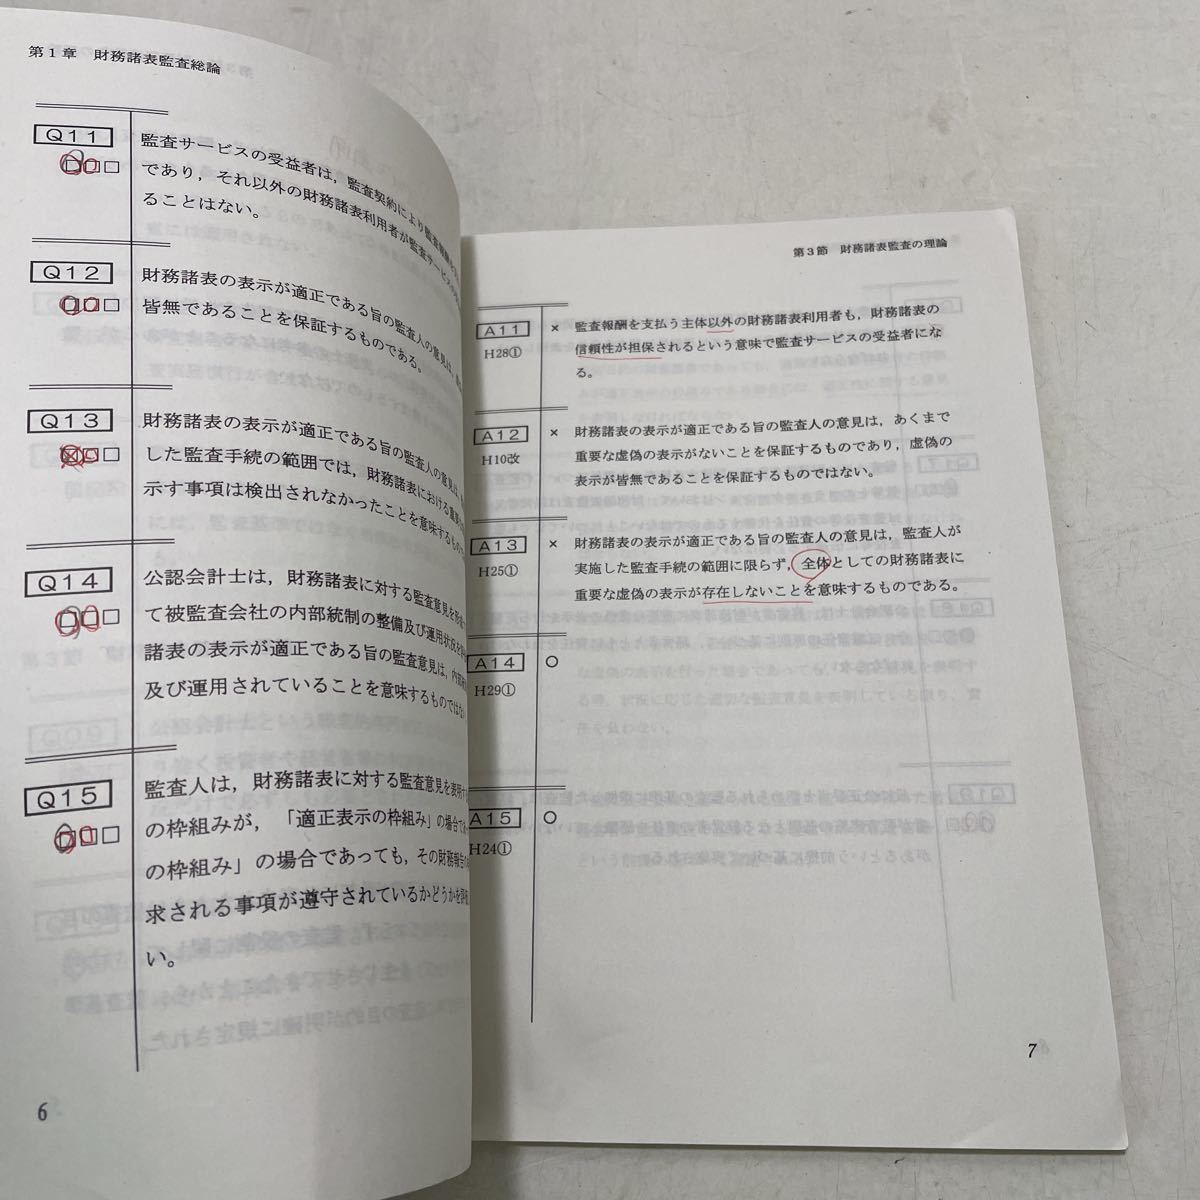 第1章 財務諸表監査総論
Q11
監査サービスの受益者は，監査契約により監査報酬を
であり，それ以外の財務諸表利用者が監査サービスの
ることはない。
Q12
財務諸表の表示が適正である旨の監査人の意見は，
皆無であることを保証するものである。
Q13
財務諸表の表示が適正である旨の監査人の意見は，
した監査手続の範囲では，財務諸表における重要な
示す事項は検出されなかったことを意味するもの
Q14
公認会計士は，財務諸表に対する監査意見を形成
て被監査会社の内部統制の整備及び運用状況を
諸表の表示が適正である旨の監査意見は，内部
及び運用されていることを意味するものではない
Q15
監査人は，財務諸表に対する監査意見を表明す
の枠組みが，「適正表示の枠組み」の場合であ
の枠組み」の場合であっても，その財務報告
求される事項が遵守されているかどうかを
い。
6
第3節 財務諸表監査の理論
A11
H28①
×
監査報酬を支払う主体以外の財務諸表利用者も，財務諸表の
信頼性が担保されるという意味で監査サービスの受益者にな
る。
A12
H10改
×
財務諸表の表示が適正である旨の監査人の意見は，あくまで
重要な虚偽の表示がないことを保証するものであり，虚偽の
表示が皆無であることを保証するものではない。
A13
H25①
×
財務諸表の表示が適正である旨の監査人の意見は，監査人が
実施した監査手続の範囲に限らず，全体としての財務諸表に
重要な虚偽の表示が存在しないことを意味するものである。
A14
H29①
○
A15
H24①
○
7